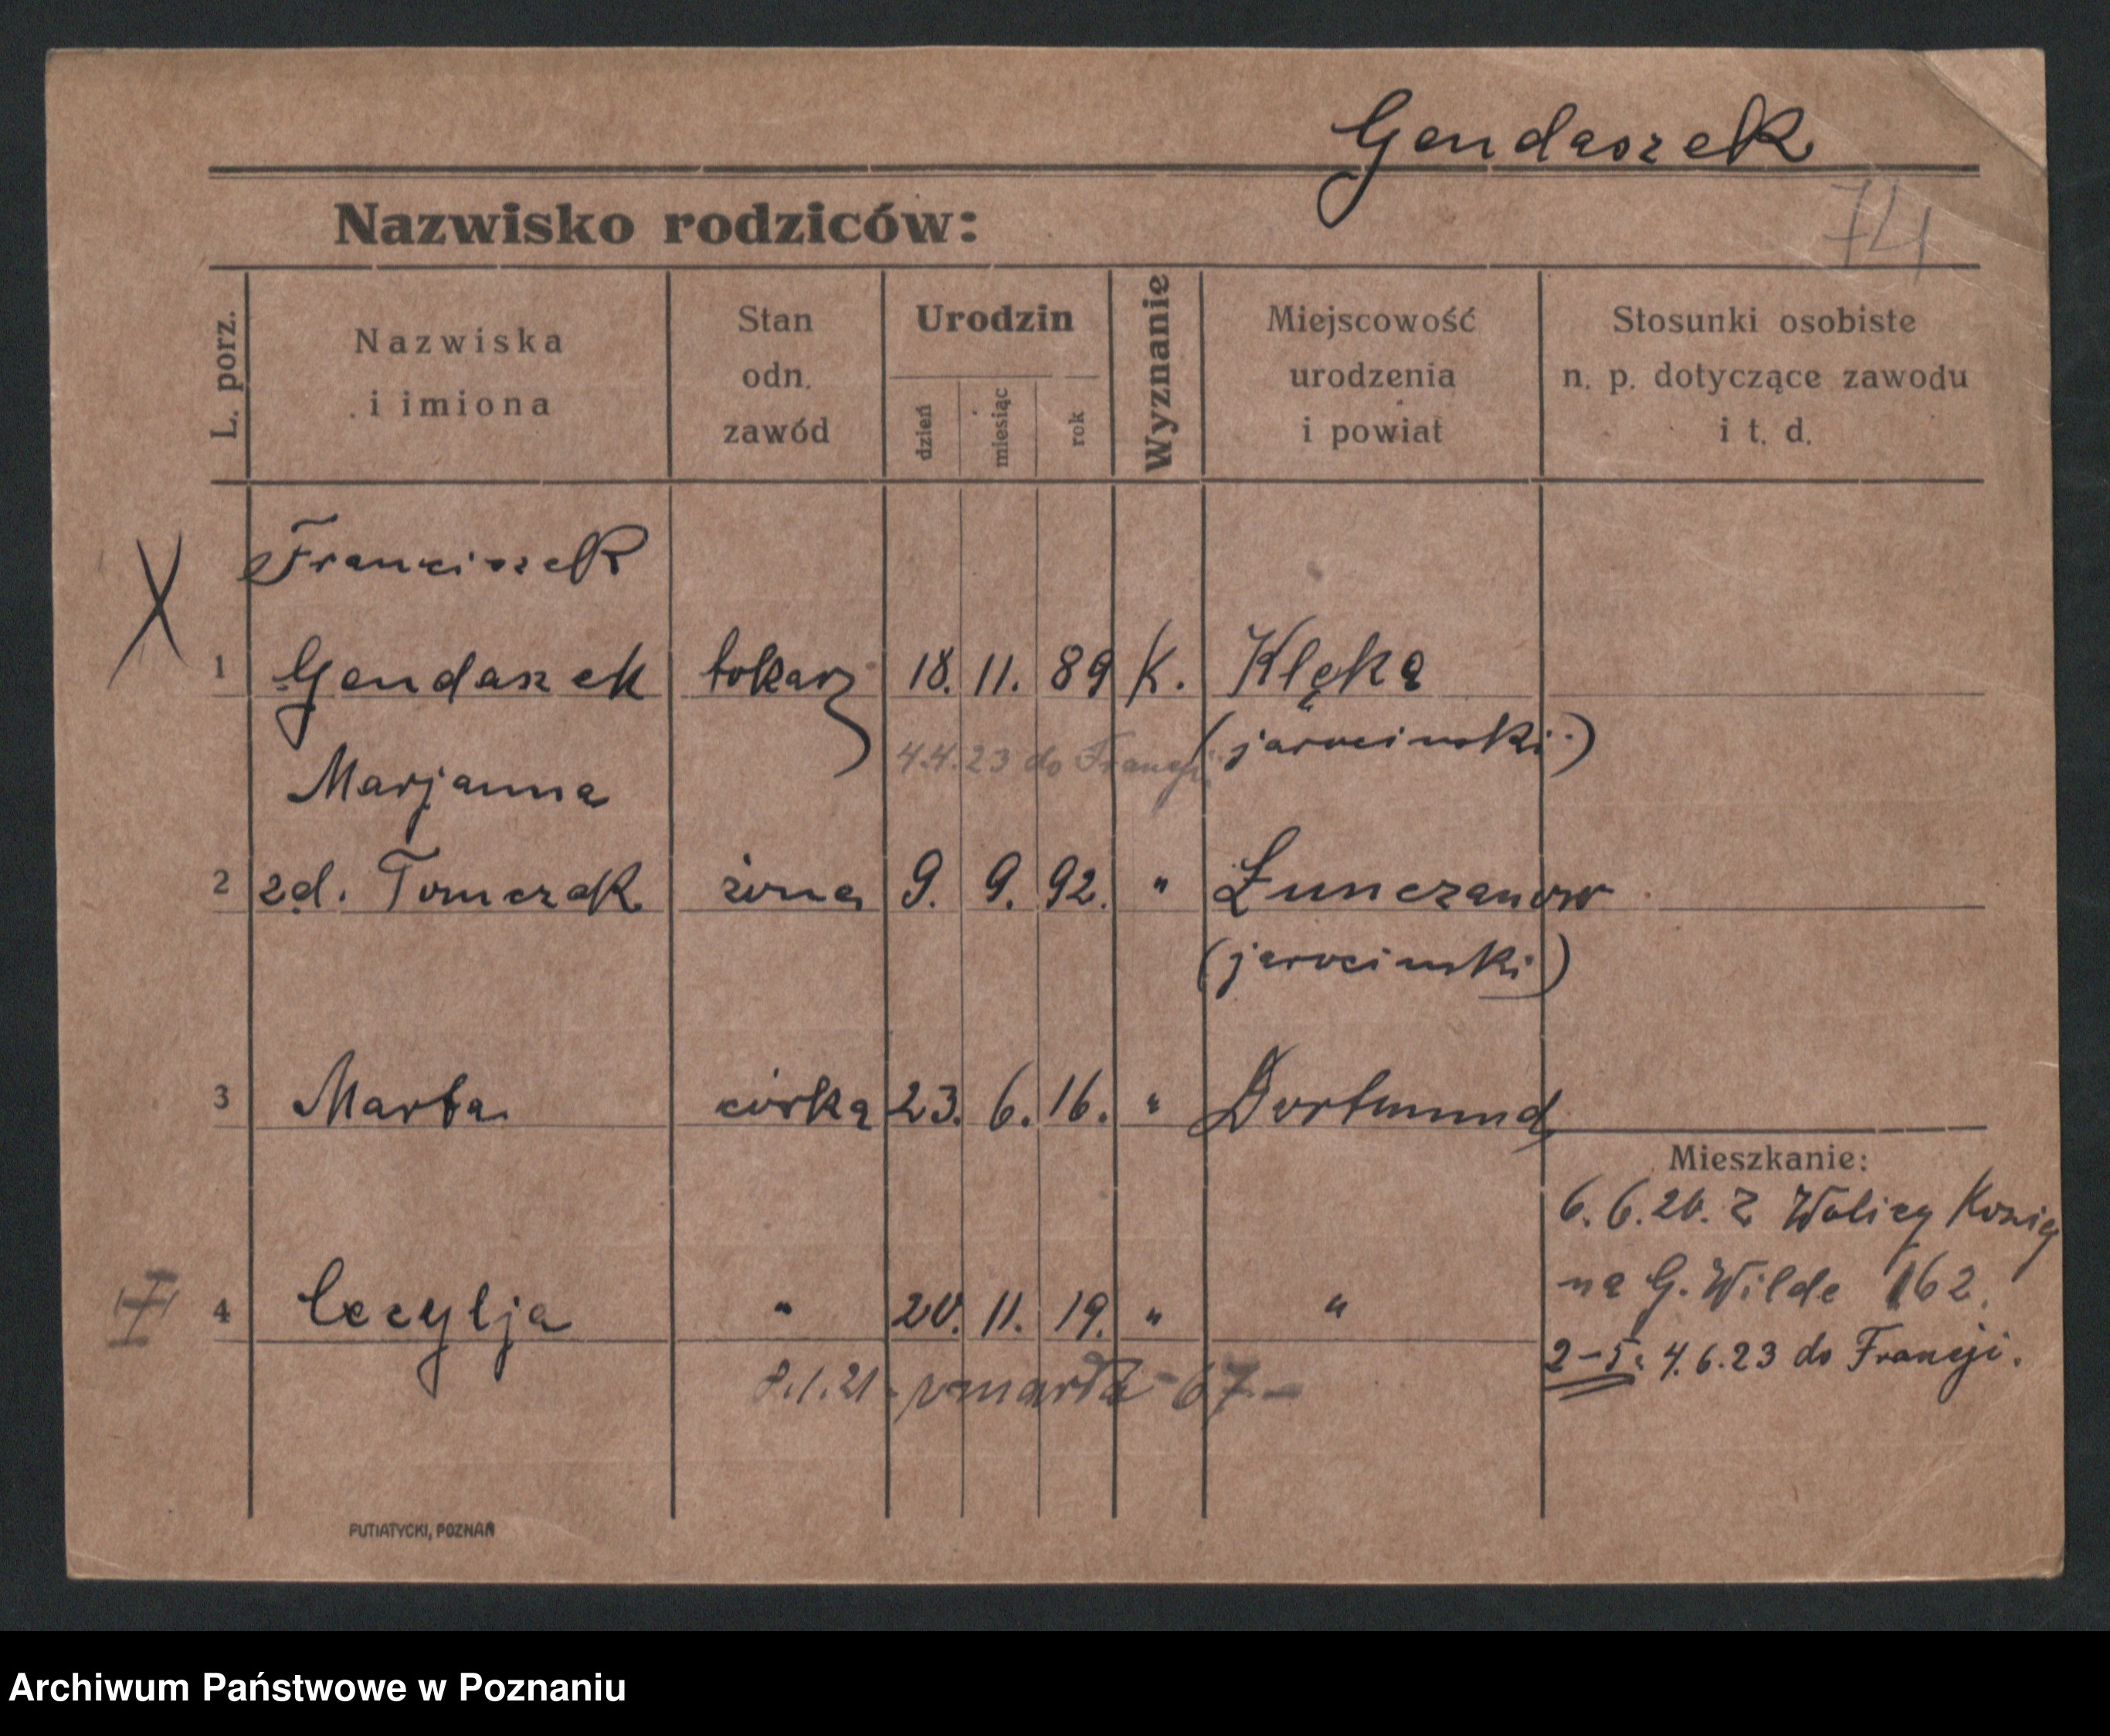 Gendaszek
74
Nazwisko rodziców:
L. porz.
Nazwiska
i imiona
Stan
odn.
zawód
Urodzin
dzień
miesiąc
rok
Wyznanie
Miejscowość
urodzenia
i powiat
Stosunki osobiste
n. p. dotyczące zawodu
i t. d.
X
Franciszek
1 Gendaszek tokarz 18. 11. 89 K. Klęka
(jarociński)
4.4.23 do Francji
Marjanna
2 zd. Tomczak żona 9. 9. 92. " Łunczanow
(jarociński)
3 Marta córka 23. 6. 16. " Dortmund
4 Cecylja " 20. 11. 19. " "
8.1.21 - zmarła - 67 -
Mieszkanie:
6.6.20. z Wolicy
na G. Wilde 162.
2-5: 4.6.23 do Francji.
PUTIATYCKI, POZNAŃ
Archiwum Państwowe w Poznaniu